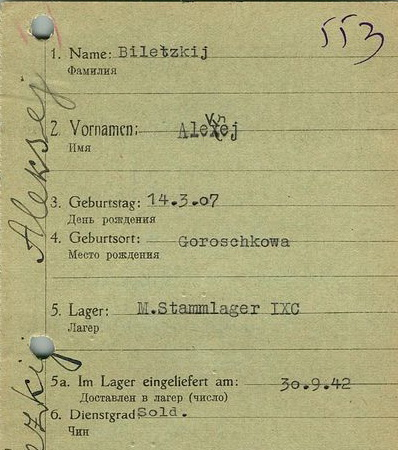 553
1. Name: Biletzkij
Фамилия
2. Vornamen: Alexej
Имя
3. Geburtstag: 14.3.07
День рождения
4. Geburtsort: Goroschkowa
Место рождения
5. Lager: M.Stammlager IXC
Лагер
5a. Im Lager eingeliefert am: 30.9.42
Доставлен в лагер (число)
6. Dienstgrad Sold.
Чин
Aleksej